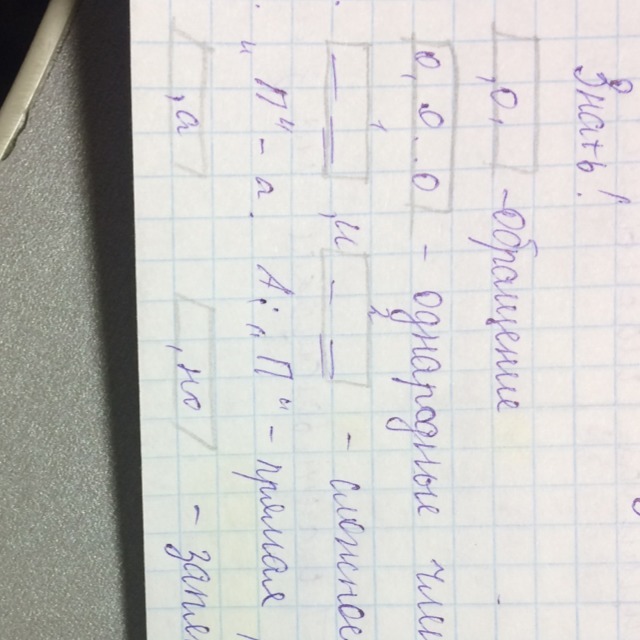 Знать!
,о, - обращение
о, о..о - однородные чле
1 , и 2 - сложное
"П" - а. А: "П" - прямая
, а , но - запя